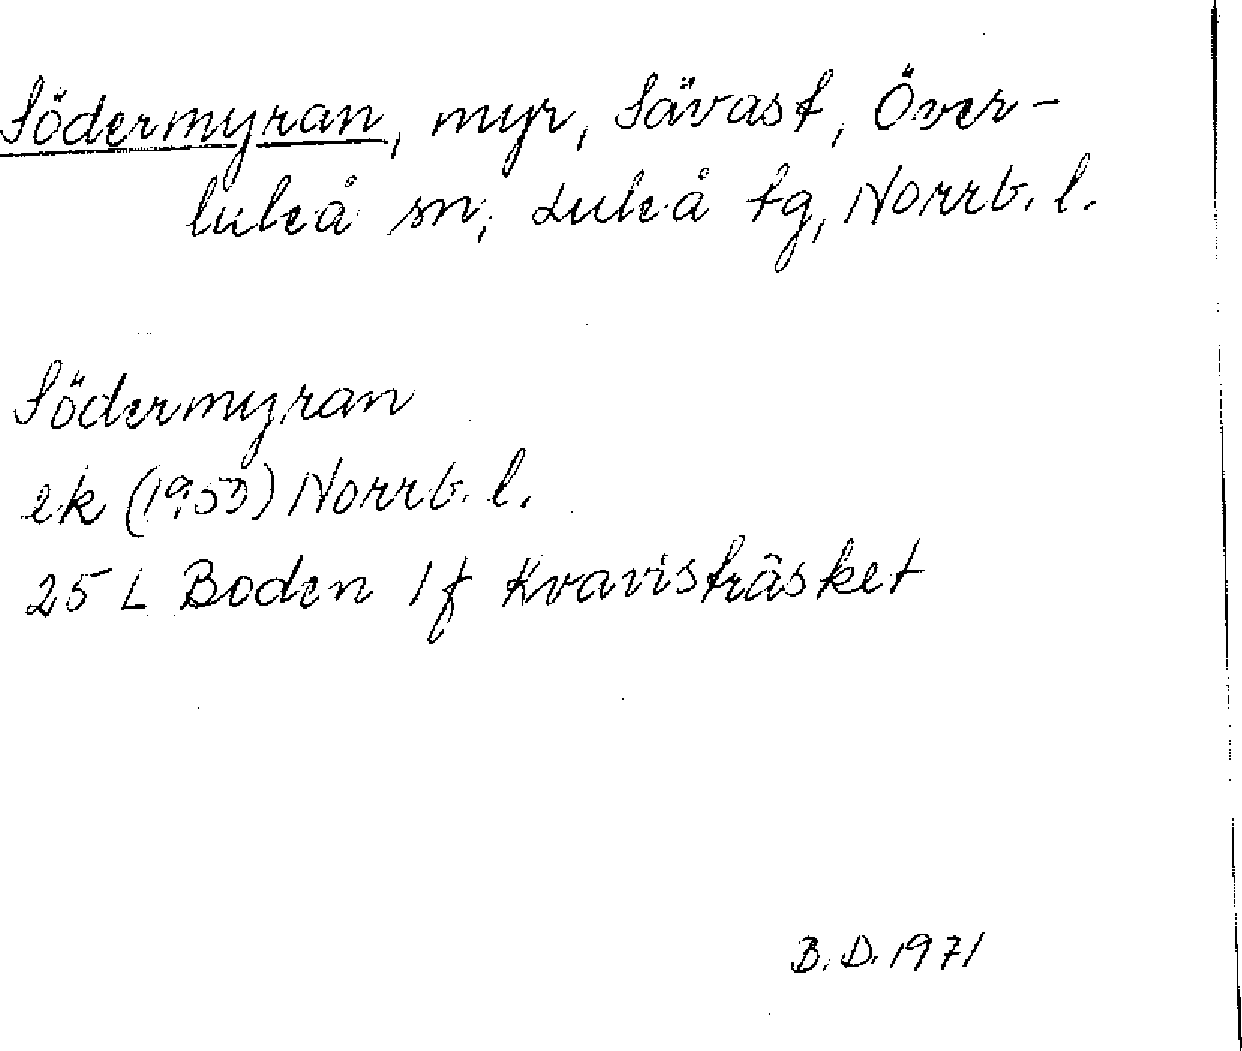 Södermyran, myr, Sävast, Över-
luleå sn, Luleå tg, Norrb. l.
Södermyran
ek (1950) Norrb. l.
25 L Boden 1f Kvavisträsket
B. D. 1971